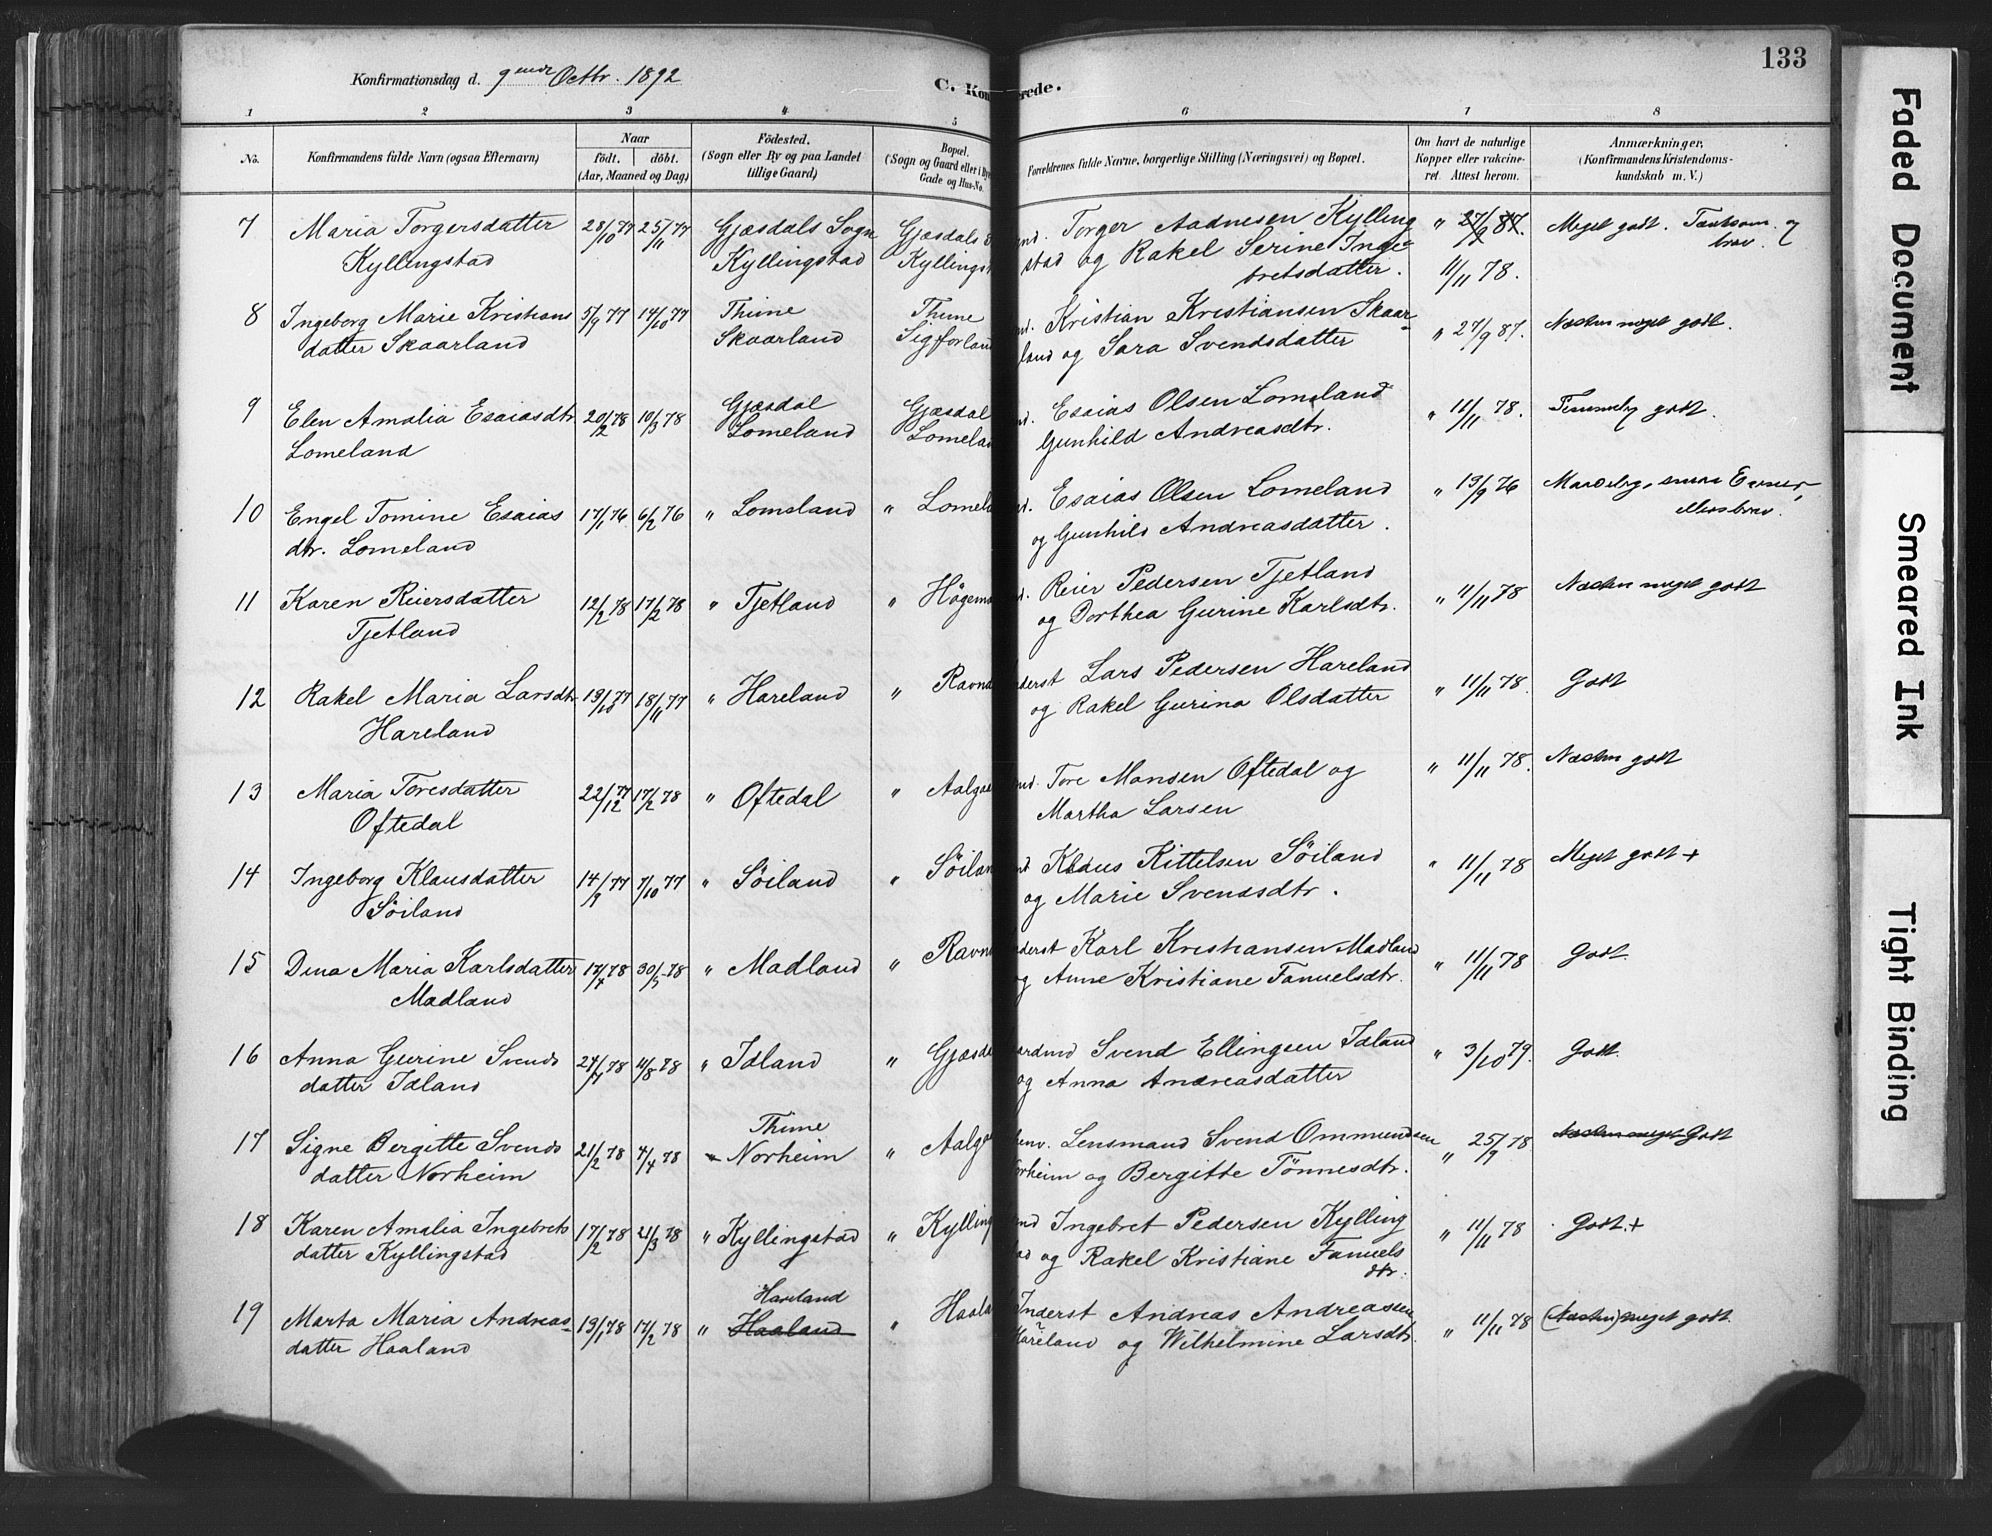 133
Konfirmationsdag d. 9ende Octbr. 1892
C. Kon
erede.
1 2 3 4 5 6 7 8
No.
Konfirmandens fulde Navn (ogsaa Efternavn)
Naar
født. døbt.
(Aar, Maaned og Dag)
Fødested.
(Sogn eller By og paa Landet
tillige Gaard)
Bopæl.
(Sogn og Gaard eller i By
Gade og Hus-No.
Forældrenes fulde Navne, borgerlige Stilling (Næringsvei) og Bopæl.
Om havt de naturlige
Kopper eller vakcine-
ret. Attest herom.
Anmærkninger,
(Konfirmandens Kristendoms-
kundskab m. V.)
7 Maria Torgersdatter 28/10 77 25/11 77 Gjæsdals Sogn Gjæsdals S nd. Torger Aadnesen Kylling " 27/9 87. Meget godt. Tarvsom og
Kyllingstad Kyllingstad Kyllingst stad og Rakel Serine Inge- brav.
bretsdatter. 11/11 78.
8 Ingeborg Marie Kristians 5/9 77 14/10 77 Thime Thime nd. Kristian Kristiansen Skaar- " 27/9 87. Næsten meget godt.
datter Skaarland Skaarland Sigforland land og Sara Svendsdatter
9 Elen Amalia Esaiasdtr. 20/2 78 10/3 78 Gjæsdal Gjæsdal d. Esaias Olsen Lomeland " 11/11 78. Temmelig godt.
Lomeland Lomeland Lomelan Gunhild Andreasdtr.
10 Engel Tomine Esaias 17/1 76 6/2 76 " Lomeland " Lomela d. Esaias Olsen Lomeland " 13/9 76
dtr. Lomeland og Gunhild Andreasdatter.
11 Karen Reiersdatter 12/2 78 17/2 78 " Tjetland " Högemo d. Reier Pedersen Tjetland " 11/11 78 Næsten meget godt
Tjetland og Dorthea Gurine Karlsdtr.
12 Rakel Maria Larsdtr. 19/10 77 18/11 77 " Hareland " Ravnd nderst Lars Pedersen Hareland " 11/11 78. Godt
Hareland og Rakel Gurina Olsdatter
13 Maria Toresdatter 22/12 77 17/2 78 " Oftedal " Aalgaa nd. Tore Monsen Oftedal og " 11/11 78. Næsten godt
Oftedal Martha Larsen
14 Ingeborg Klausdatter 14/9 77 7/10 77 " Söiland " Söilan nd Klaus Kittelsen Söiland " 11/11 78 Meget godt +
Söiland og Marie Svendsdtr.
15 Dina Maria Karlsdatter 17/4 78 30/5 78 " Madland " Ravnd nderst Karl Kristiansen Madland " 11/11 78 Godt.
Madland og Anne Kristiane Fanuelsdtr.
16 Anna Gurine Svends 27/7 78 11/8 78 " Idland " Gjæsda ardmd Svend Ellingsen Idland " 3/10 79. Godt.
datter Idland og Anna Andreasdatter
Thime
17 Signe Bergitte Svends 21/2 78 4/4 78 " Norheim " Aalgaa henv. Lensmand Svend Ommundsen " 25/9 78 Næsten meget Godt
datter Norheim orheim og Bergitte Tönnesdtr.
18 Karen Amalia Ingebrets 17/2 78 21/3 78 " Kyllingstad " Kylling nd Ingebret Pedersen Kylling " 11/11 78 Godt. +
datter Kyllingstad ad og Rakel Kristiane Fanuels
dtr.
Hareland
19 Marta Maria Andreas- 19/1 78 17/2 78 " Haaland " Haala Inderst Andreas Andreassen " 11/11 78 (Næsten) meget godt.
datter Haaland Hareland og Wilhelmine Larsdtr.
Faded Document
Smeared Ink
Tight Binding